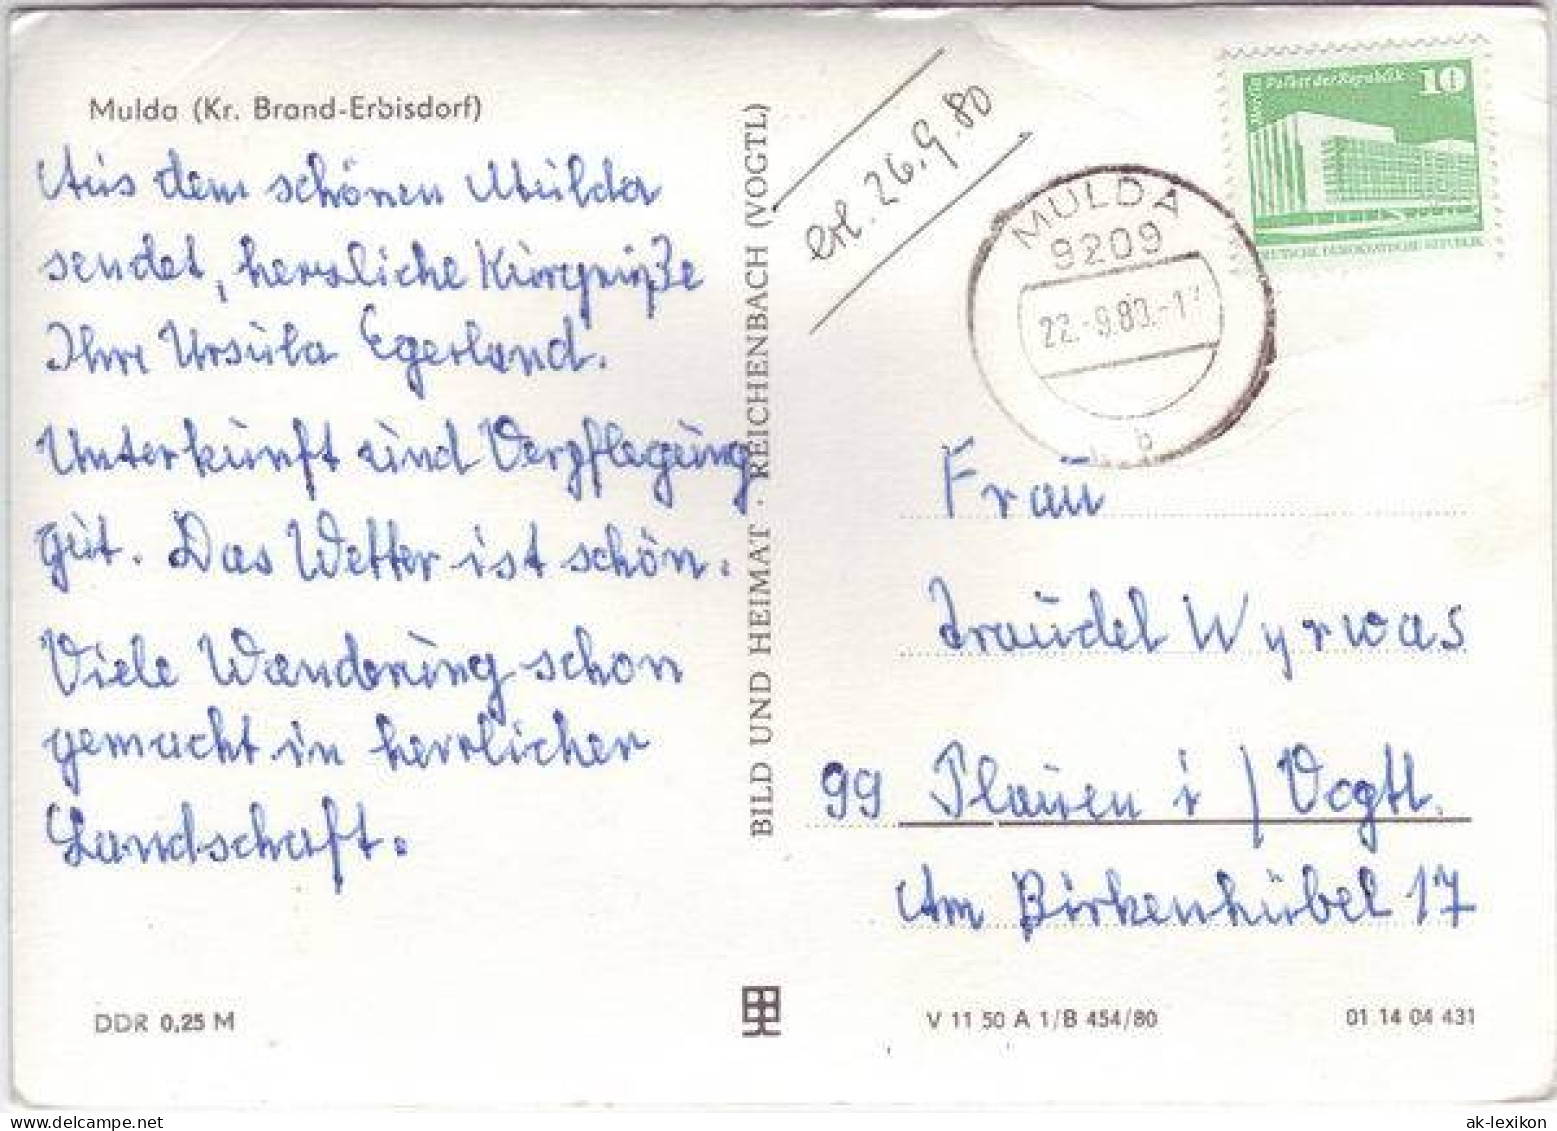 Mulda (Kr. Brand-Erbisdorf)
Aus dem schönen Mulda
sendet, herzliche Kurgrüße
Ihre Ursula Egerland.
Unterkunft und Verpflegung
gut. Das Wetter ist schön.
Viele Wanderung schon
gemacht in herrlicher
Landschaft.
DDR 0,25 M
BILD UND HEIMAT · REICHENBACH (VOGTL)
erl. 26.9.80
Palast der Republik 10
DEUTSCHE DEMOKRATISCHE REPUBLIK
MULDA
9209
22.-9.80.-1
b
Frau
Traudel Wyrwas
99 Plauen i / Vogtl.
Am Birkenhübel 17
V 11 50 A 1/B 454/80
01 14 04 431
ak-lexikon